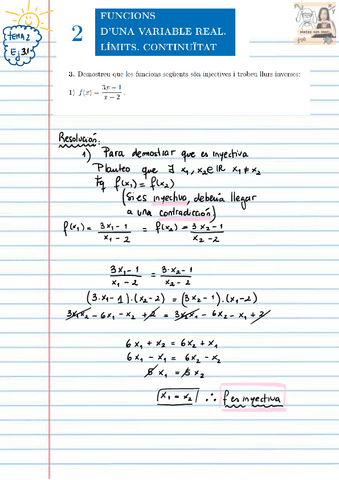 tema 2
Ej 3.1
2
FUNCIONS
D'UNA VARIABLE REAL.
LÍMITS. CONTINUÏTAT
3. Demostreu que les funcions següents són injectives i trobeu llurs inverses:
1) f(x) = (3x − 1)/(x − 2).
Resolución:
1) Para demostrar que es inyectiva
Planteo que ∃ x₁, x₂ ∈ ℝ x₁ ≠ x₂
tq f(x₁) = f(x₂)
(Si es inyectiva, debería llegar
a una contradicción)
f(x₁) = (3x₁ − 1)/(x₁ − 2) = f(x₂) = (3x₂ − 1)/(x₂ − 2)
(3x₁ − 1)/(x₁ − 2) = (3·x₂ − 1)/(x₂ − 2)
(3·x₁ − 1)·(x₂ − 2) = (3x₂ − 1)·(x₁ − 2)
3x₁x₂ − 6x₁ − x₂ + 2 = 3x₂x₁ − 6x₂ − x₁ + 2
6x₁ + x₂ = 6x₂ + x₁
6x₁ − x₁ = 6x₂ − x₂
5x₁ = 5x₂
x₁ = x₂ ∴ f es inyectiva